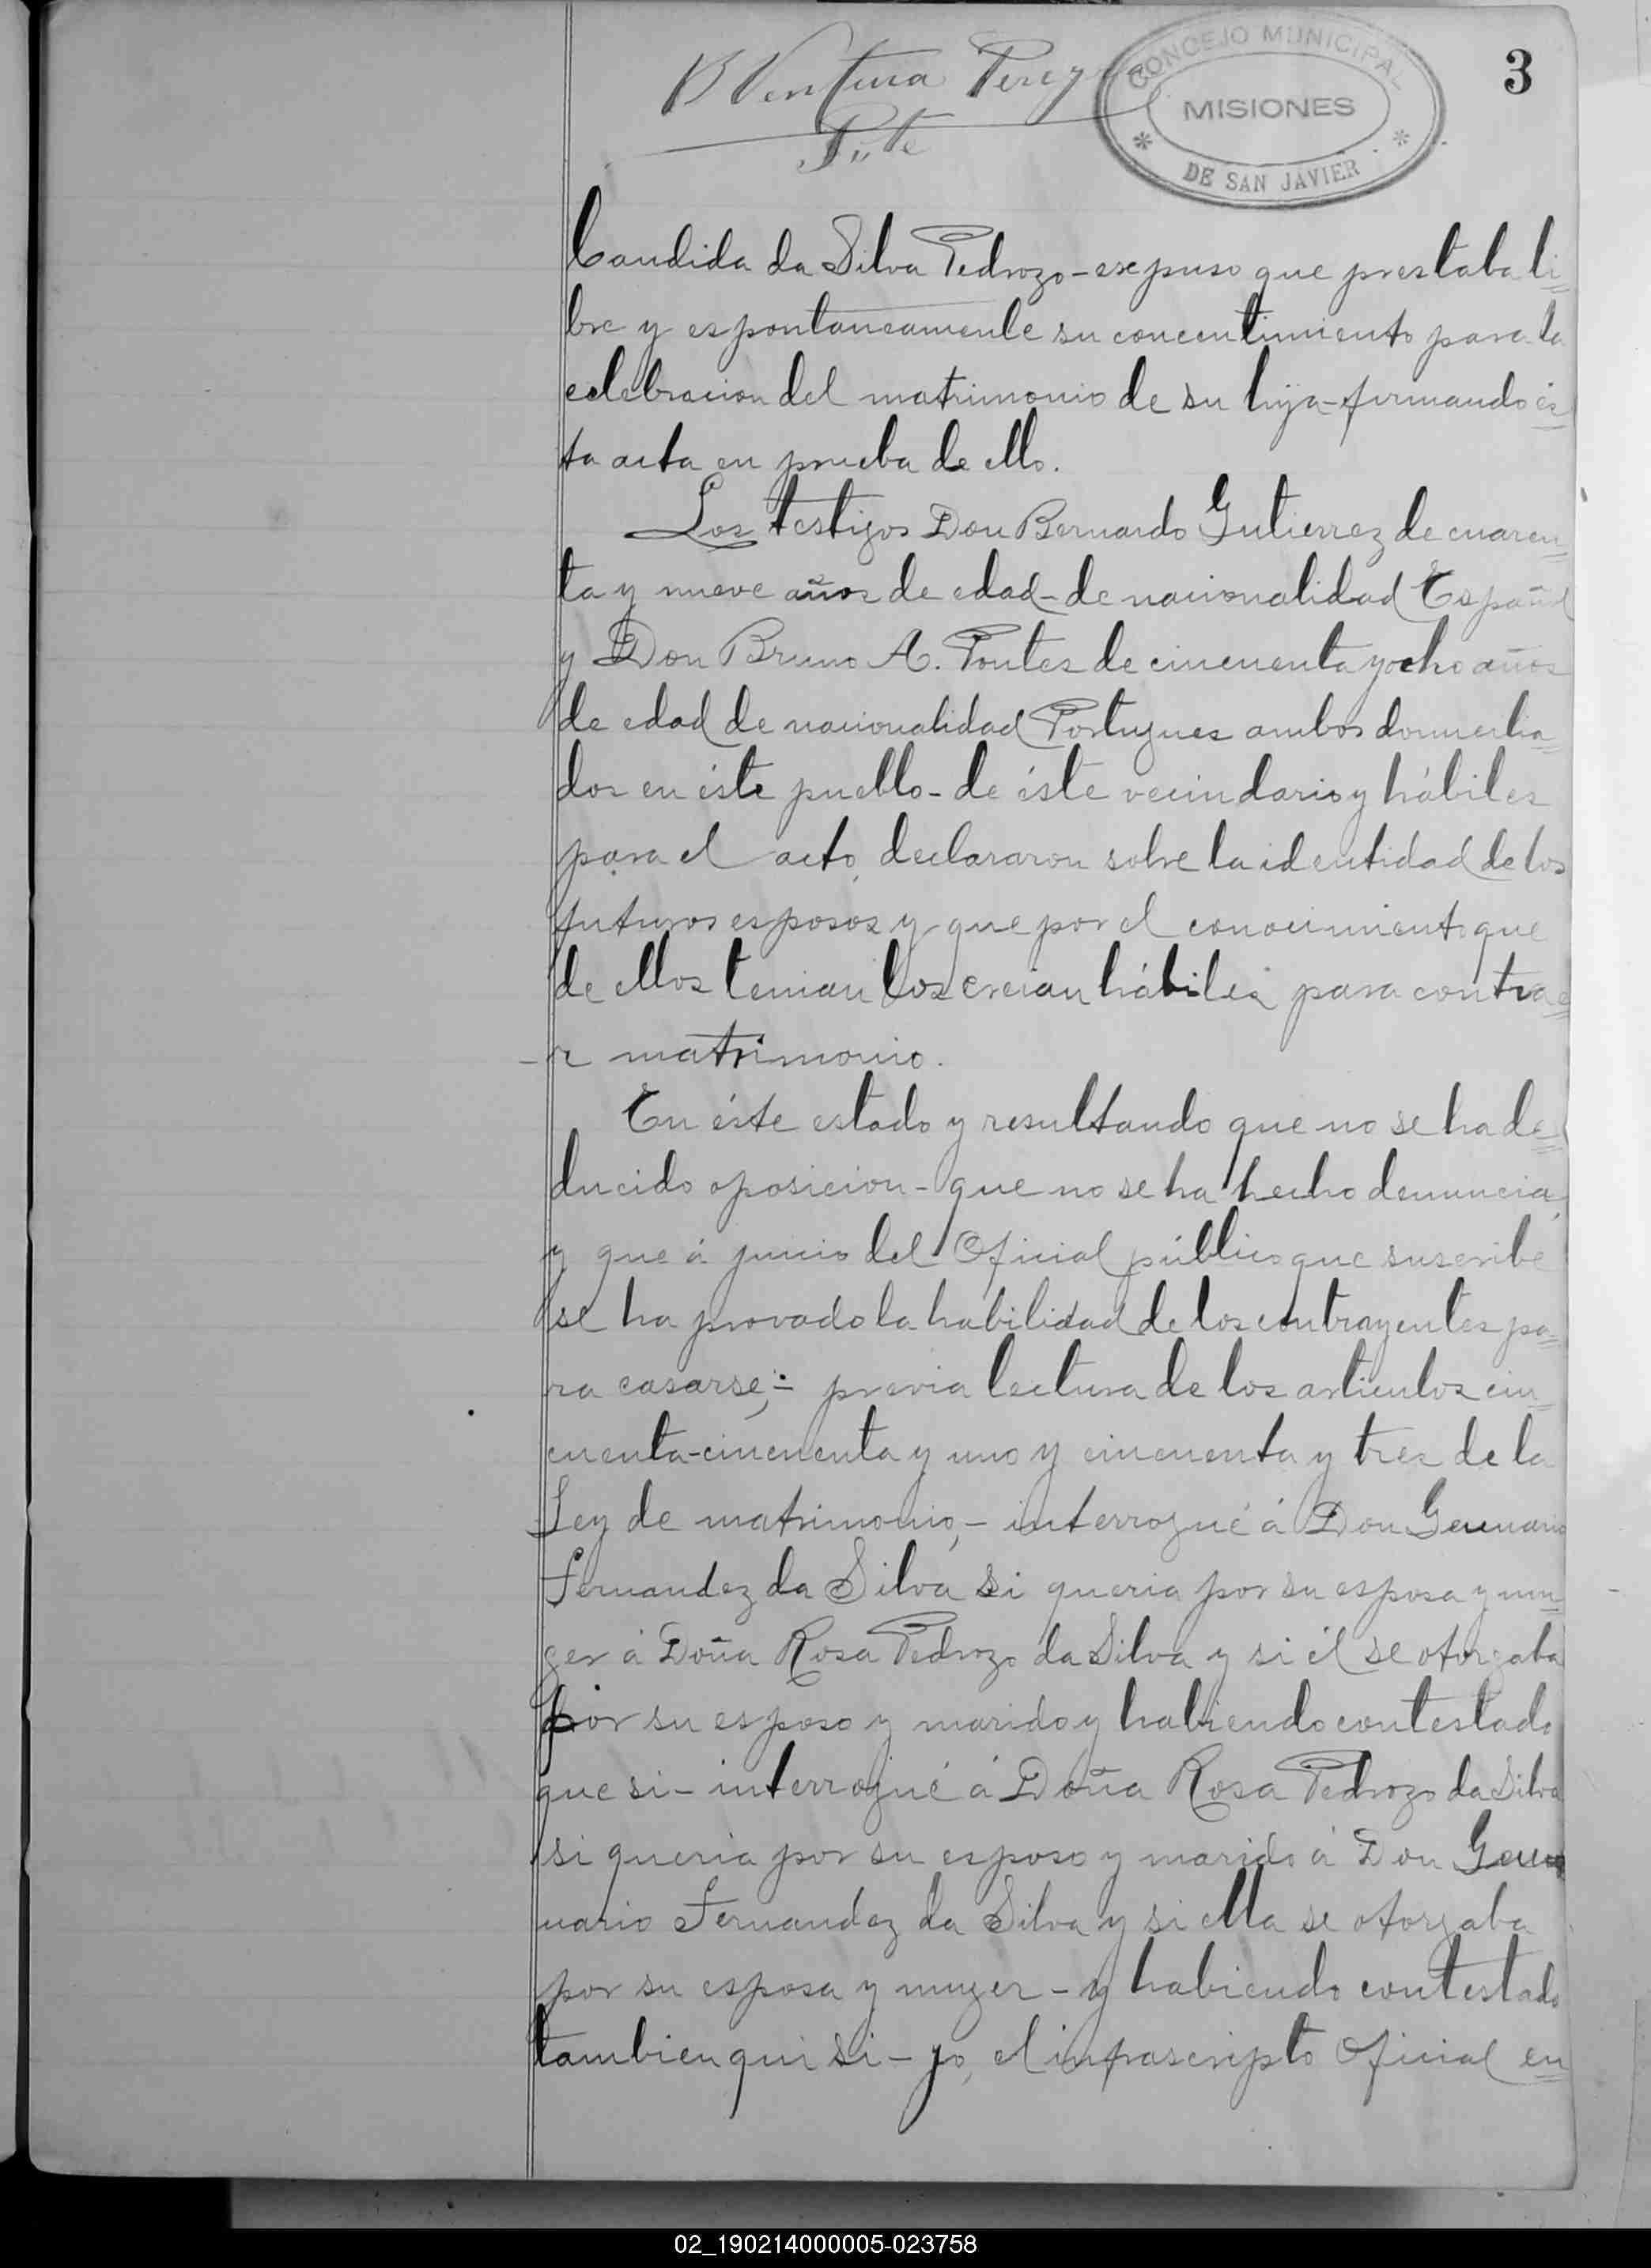 B Ventura Perez
Pte
CONCEJO MUNICIPAL
MISIONES
DE SAN JAVIER
3
Candida da Silva Pedrozo - expuso que prestaba li=
bre y espontaneamente su concentimiento para la
celebracion del matrimonio de su hija - firmando és=
ta acta en prueba de ello.
Los testigos Don Bernardo Gutierrez de cuaren=
ta y nueve años de edad - de nacionalidad Español
y Don Bruno A. Pontes de cincuenta y ocho años
de edad de nacionalidad Portugues ambos domicilia=
dos en éste pueblo - de éste vecindario y hábiles
para el acto, declararon sobre la identidad de los
futuros esposos y que por el conocimiento que
de ellos tenian los creian hábiles para contrae=
-r matrimonio.
En éste estado y resultando que no se ha de=
ducido oposicion - que no se ha hecho denuncia,
y que á juicio del Oficial público que suscribe
se ha provado la habilidad de los contrayentes pa=
ra casarse; - previa lectura de los articulos cin=
cuenta - cincuenta y uno y cincuenta y tres de la
Ley de matrimonio, - interrogué á Don Genuario
Fernandez da Silva si queria por su esposa y mu=
ger á Doña Rosa Pedrozo da Silva y si él se otorgaba
por su esposo y marido y habiendo contestado
que si - interrogué á Doña Rosa Pedrozo da Silva
si queria por su esposo y marido á Don Ge
nuario Fernandez da Silva y si ella se otorgaba
por su esposa y muger - y habiendo contestado
tambien qui si - yo, el infrascripto Oficial en=
02_190214000005-023758